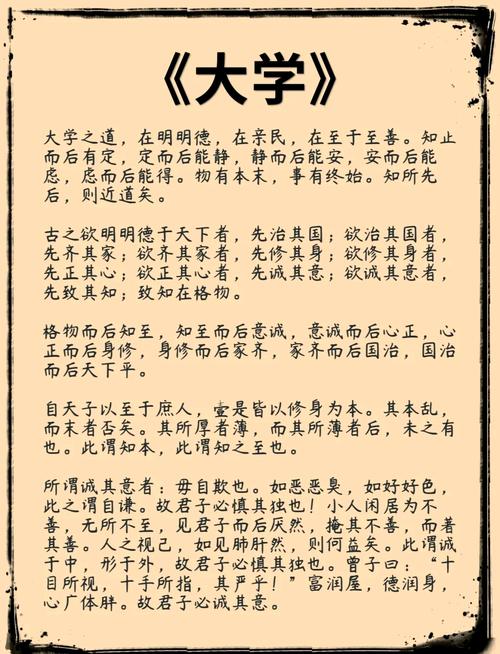 《大学》
大学之道，在明明德，在亲民，在至于至善。知止
而后有定，定而后能静，静而后能安，安而后能
虑，虑而后能得。物有本末，事有终始。知所先
后，则近道矣。
古之欲明明德于天下者，先治其国；欲治其国者，
先齐其家；欲齐其家者，先修其身；欲修其身者，
先正其心；欲正其心者，先诚其意；欲诚其意者，
先致其知；致知在格物。
格物而后知至，知至而后意诚，意诚而后心正，心
正而后身修，身修而后家齐，家齐而后国治，国治
而后天下平。
自天子以至于庶人，壹是皆以修身为本。其本乱，
而末者否矣。其所厚者薄，而其所薄者后，未之有
也。此谓知本，此谓知之至也。
所谓诚其意者：毋自欺也。如恶恶臭，如好好色，
此之谓自谦。故君子必慎其独也！小人闲居为不
善，无所不至，见君子而后厌然，掩其不善，而著
其善。人之视己，如见肺肝然，则何益矣。此谓诚
于中，形于外，故君子必慎其独也。曾子曰：“十
目所视，十手所指，其严乎！”富润屋，德润身，
心广体胖。故君子必诚其意。